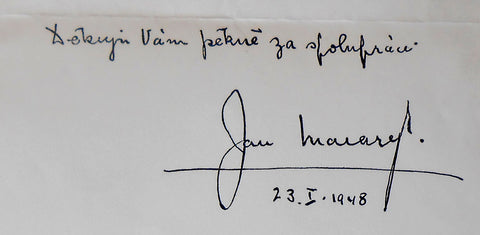 Děkuji Vám pěkně za spolupráci.
Jan Masaryk.
23. I. 1948